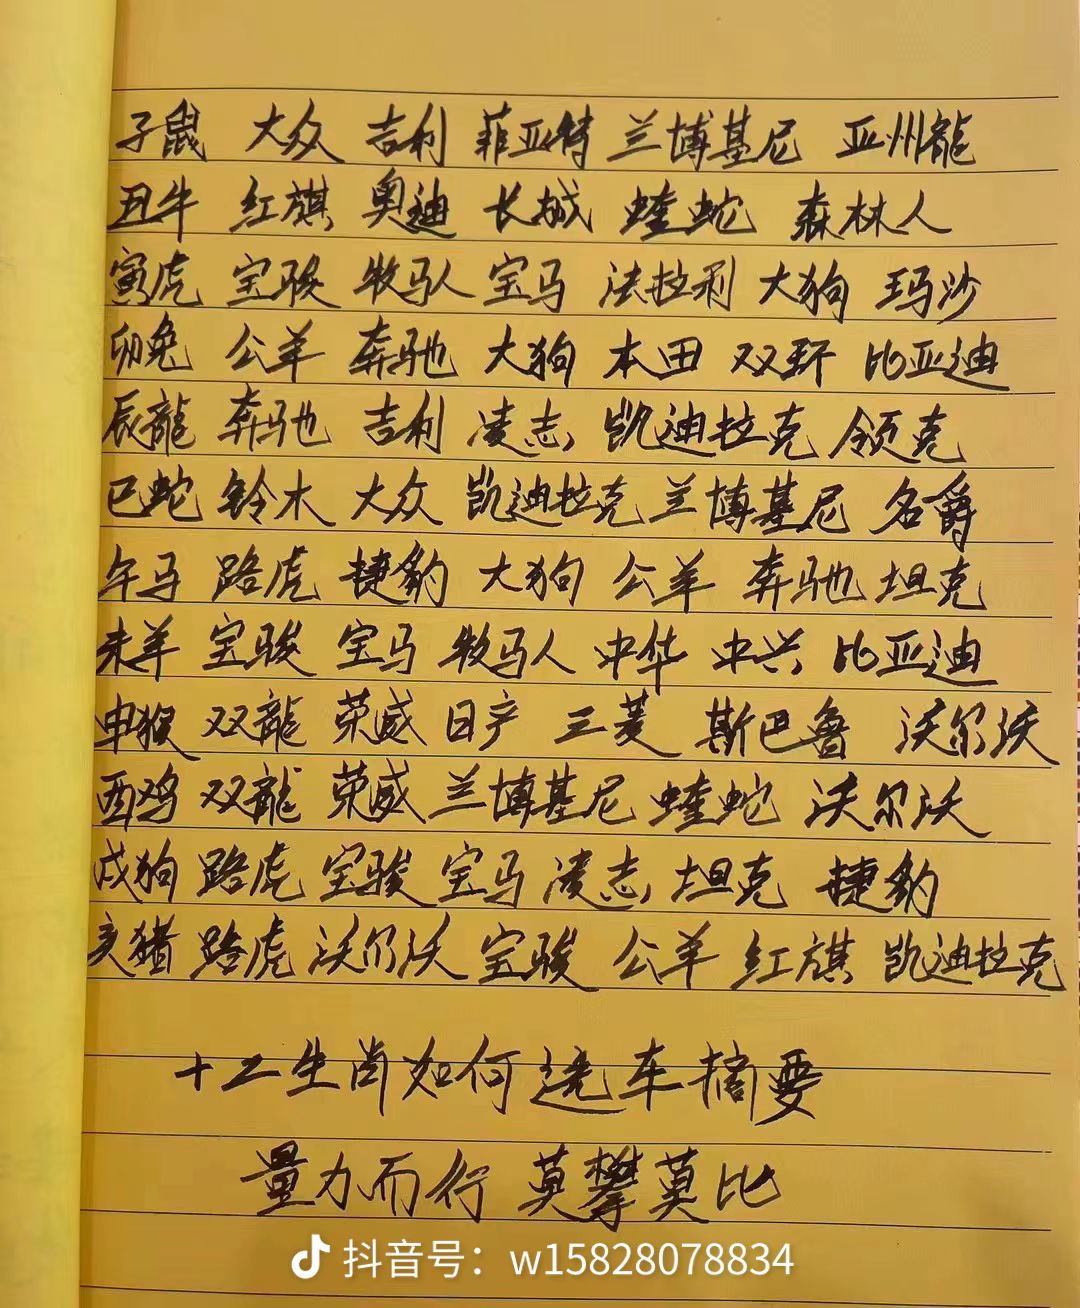 子鼠 大众 吉利 菲亚特 兰博基尼 亚州龍
丑牛 红旗 奥迪 长城 蝰蛇 森林人
寅虎 宝骏 牧马人 宝马 法拉利 大狗 玛沙
卯兔 公羊 奔驰 大狗 本田 双环 比亚迪
辰龍 奔驰 吉利 凌志 凯迪拉克 领克
巳蛇 铃木 大众 凯迪拉克 兰博基尼 名爵
午马 路虎 捷豹 大狗 公羊 奔驰 坦克
未羊 宝骏 宝马 牧马人 中华 中兴 比亚迪
申猴 双龍 荣威 日产 三菱 斯巴鲁 沃尔沃
酉鸡 双龍 荣威 兰博基尼 蝰蛇 沃尔沃
戌狗 路虎 宝骏 宝马 凌志 坦克 捷豹
亥猪 路虎 沃尔沃 宝骏 公羊 红旗 凯迪拉克
十二生肖如何选车摘要
量力而行 莫攀莫比
抖音号：w15828078834